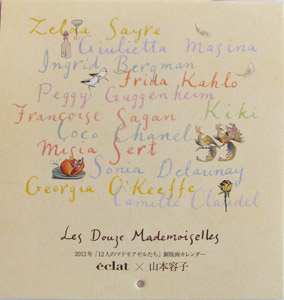 Zelda Sayre
Giulietta Masina
Ingrid Bergman
Frida Kahlo
Peggy Guggenheim
Françoise Sagan
Kiki
Coco Chanel
Misia Sert
Sonia Delaunay
Georgia O'Keeffe
Camille Claudel
Les Douze Mademoiselles
2012年「12人のマドモアゼルたち」銅版画カレンダー
éclat × 山本容子